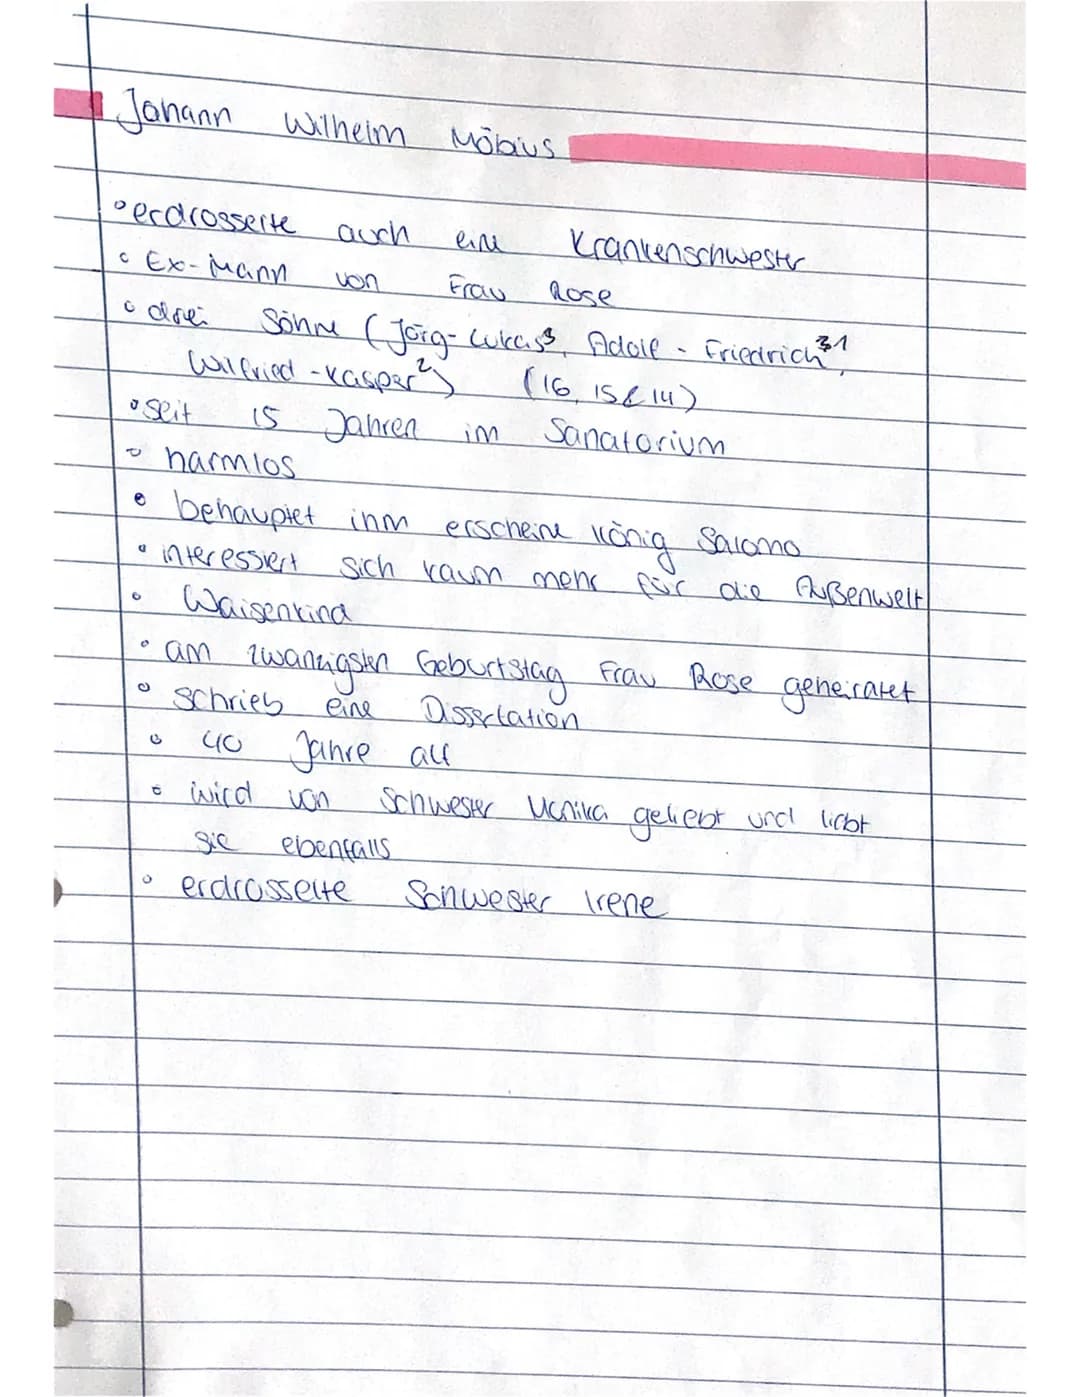 Johann Wilhelm Möbius
° erdrosselte auch eine Krankenschwester
° Ex-Mann von Frau Rose
° drei Söhne (Jörg-Lukas³, Adolf-Friedrich ¹,
Wilfried-Kasper²) (16, 15 & 14)
° seit 15 Jahren im Sanatorium
° harmlos
° behauptet ihm erscheine König Salomo
° interessiert sich kaum mehr für die Außenwelt
° Waisenkind
° am zwanzigsten Geburtstag Frau Rose geheiratet
° schrieb eine Dissertation
° 40 Jahre alt
° wird von Schwester Monika geliebt und liebt
sie ebenfalls
° erdrosselte Schwester Irene